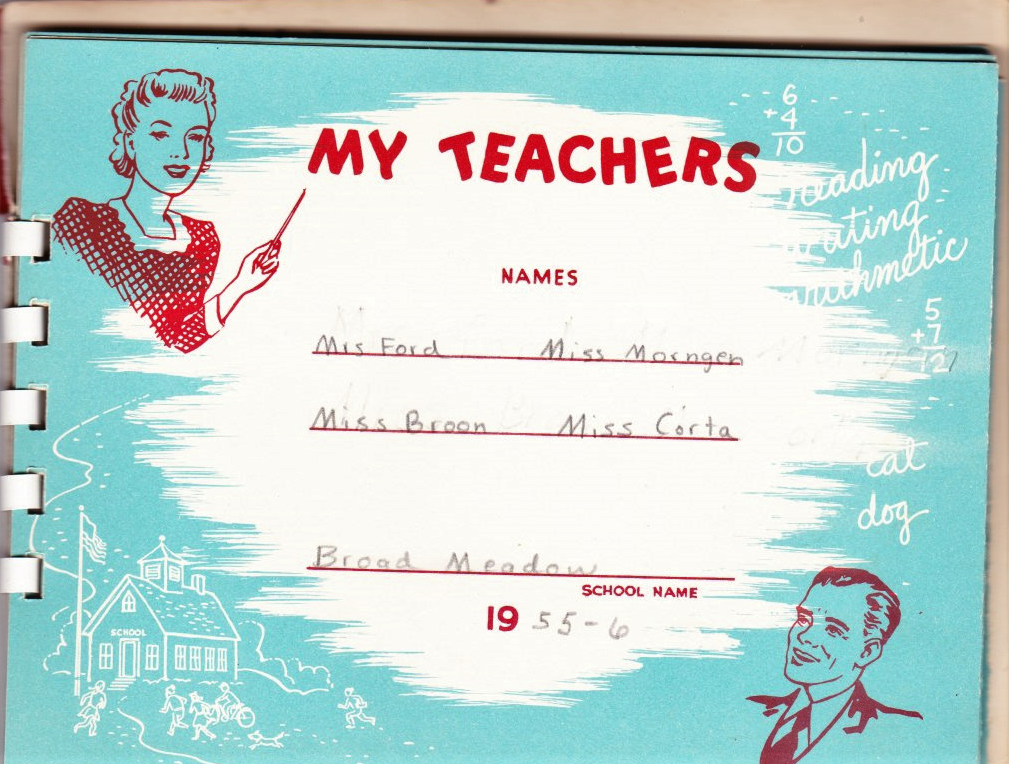 MY TEACHERS
6
+4
10
reading
writing
arithmetic
NAMES
5
+7
12
Mrs Ford Miss Morngen
Miss Broon Miss Corta
cat
dog
Broad Meadow
SCHOOL NAME
19 55-6
SCHOOL